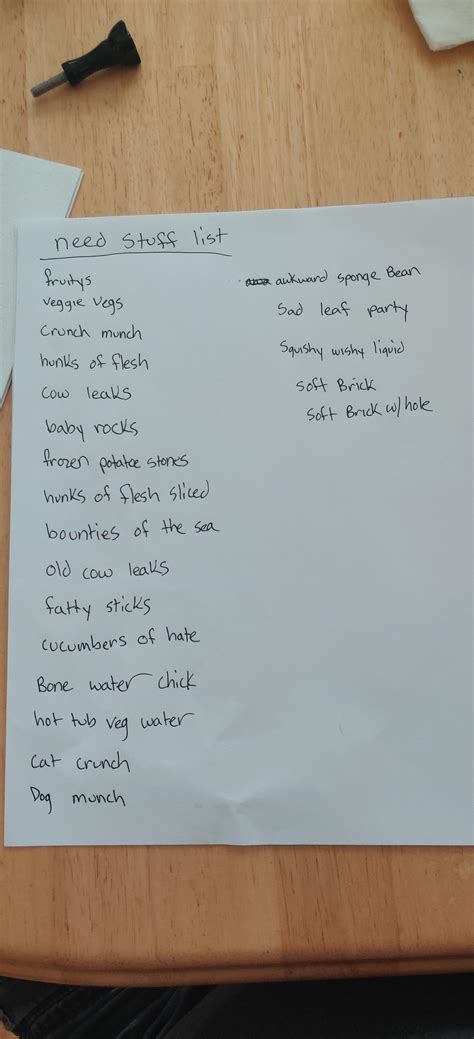 need stuff list
fruitys
veggie vegs
Crunch munch
hunks of flesh
cow leaks
baby rocks
frozen potatoe stones
hunks of flesh sliced
bounties of the sea
old cow leaks
fatty sticks
cucumbers of hate
Bone water chick
hot tub veg water
Cat crunch
Dog munch
awkward sponge Bean
Sad leaf party
Squishy wishy liquid
Soft Brick
Soft Brick w/hole